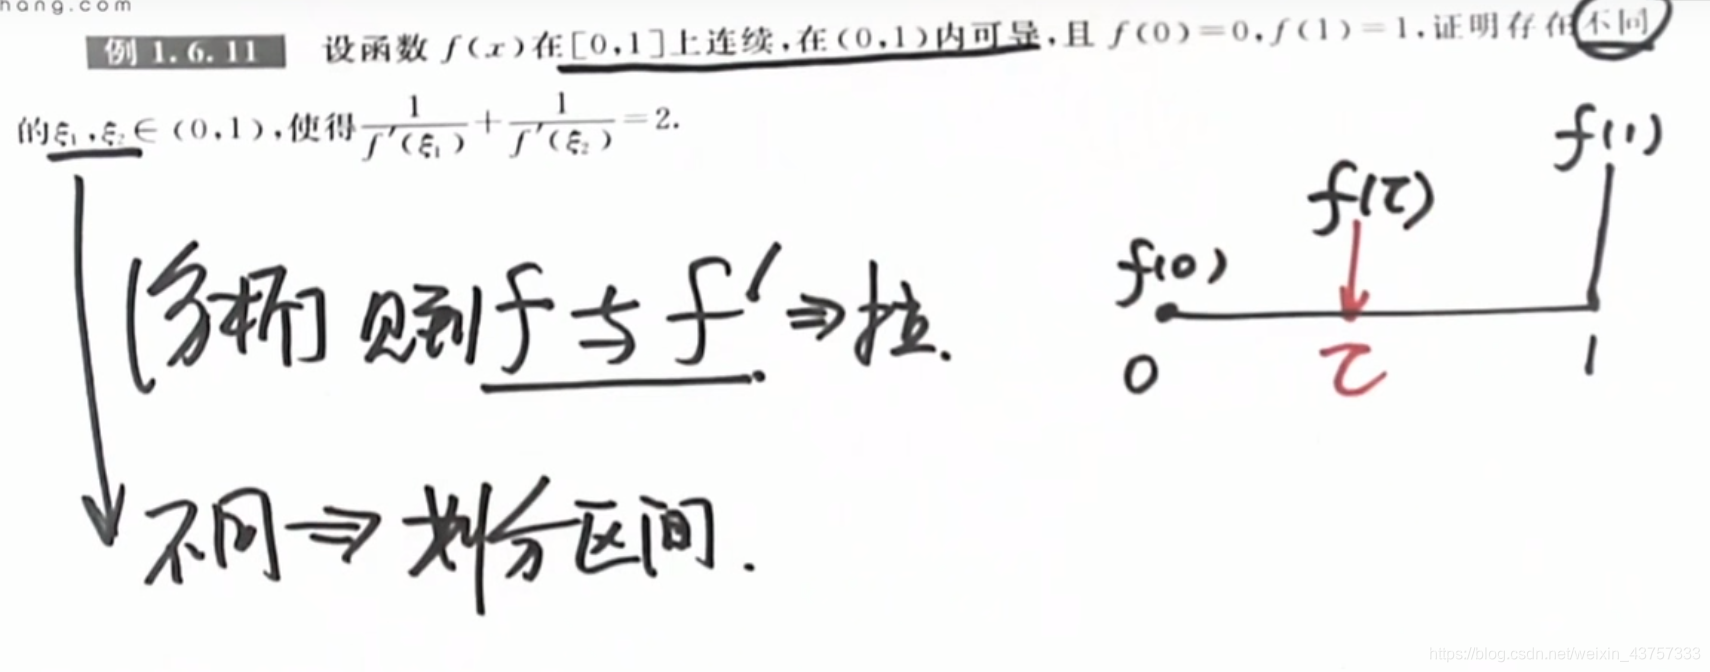 hang.com
例 1.6.11 设函数 f(x)在[0,1]上连续,在(0,1)内可导,且 f(0)=0,f(1)=1,证明存在不同
的ξ₁,ξ₂∈(0,1),使得 1/f′(ξ₁) + 1/f′(ξ₂) =2.
f(1)
f(τ)
f(0)
[分析] 见到 f 与 f′ ⇒ 拉.
0 τ 1
不同 ⇒ 划分区间.
https://blog.csdn.net/weixin_43757333